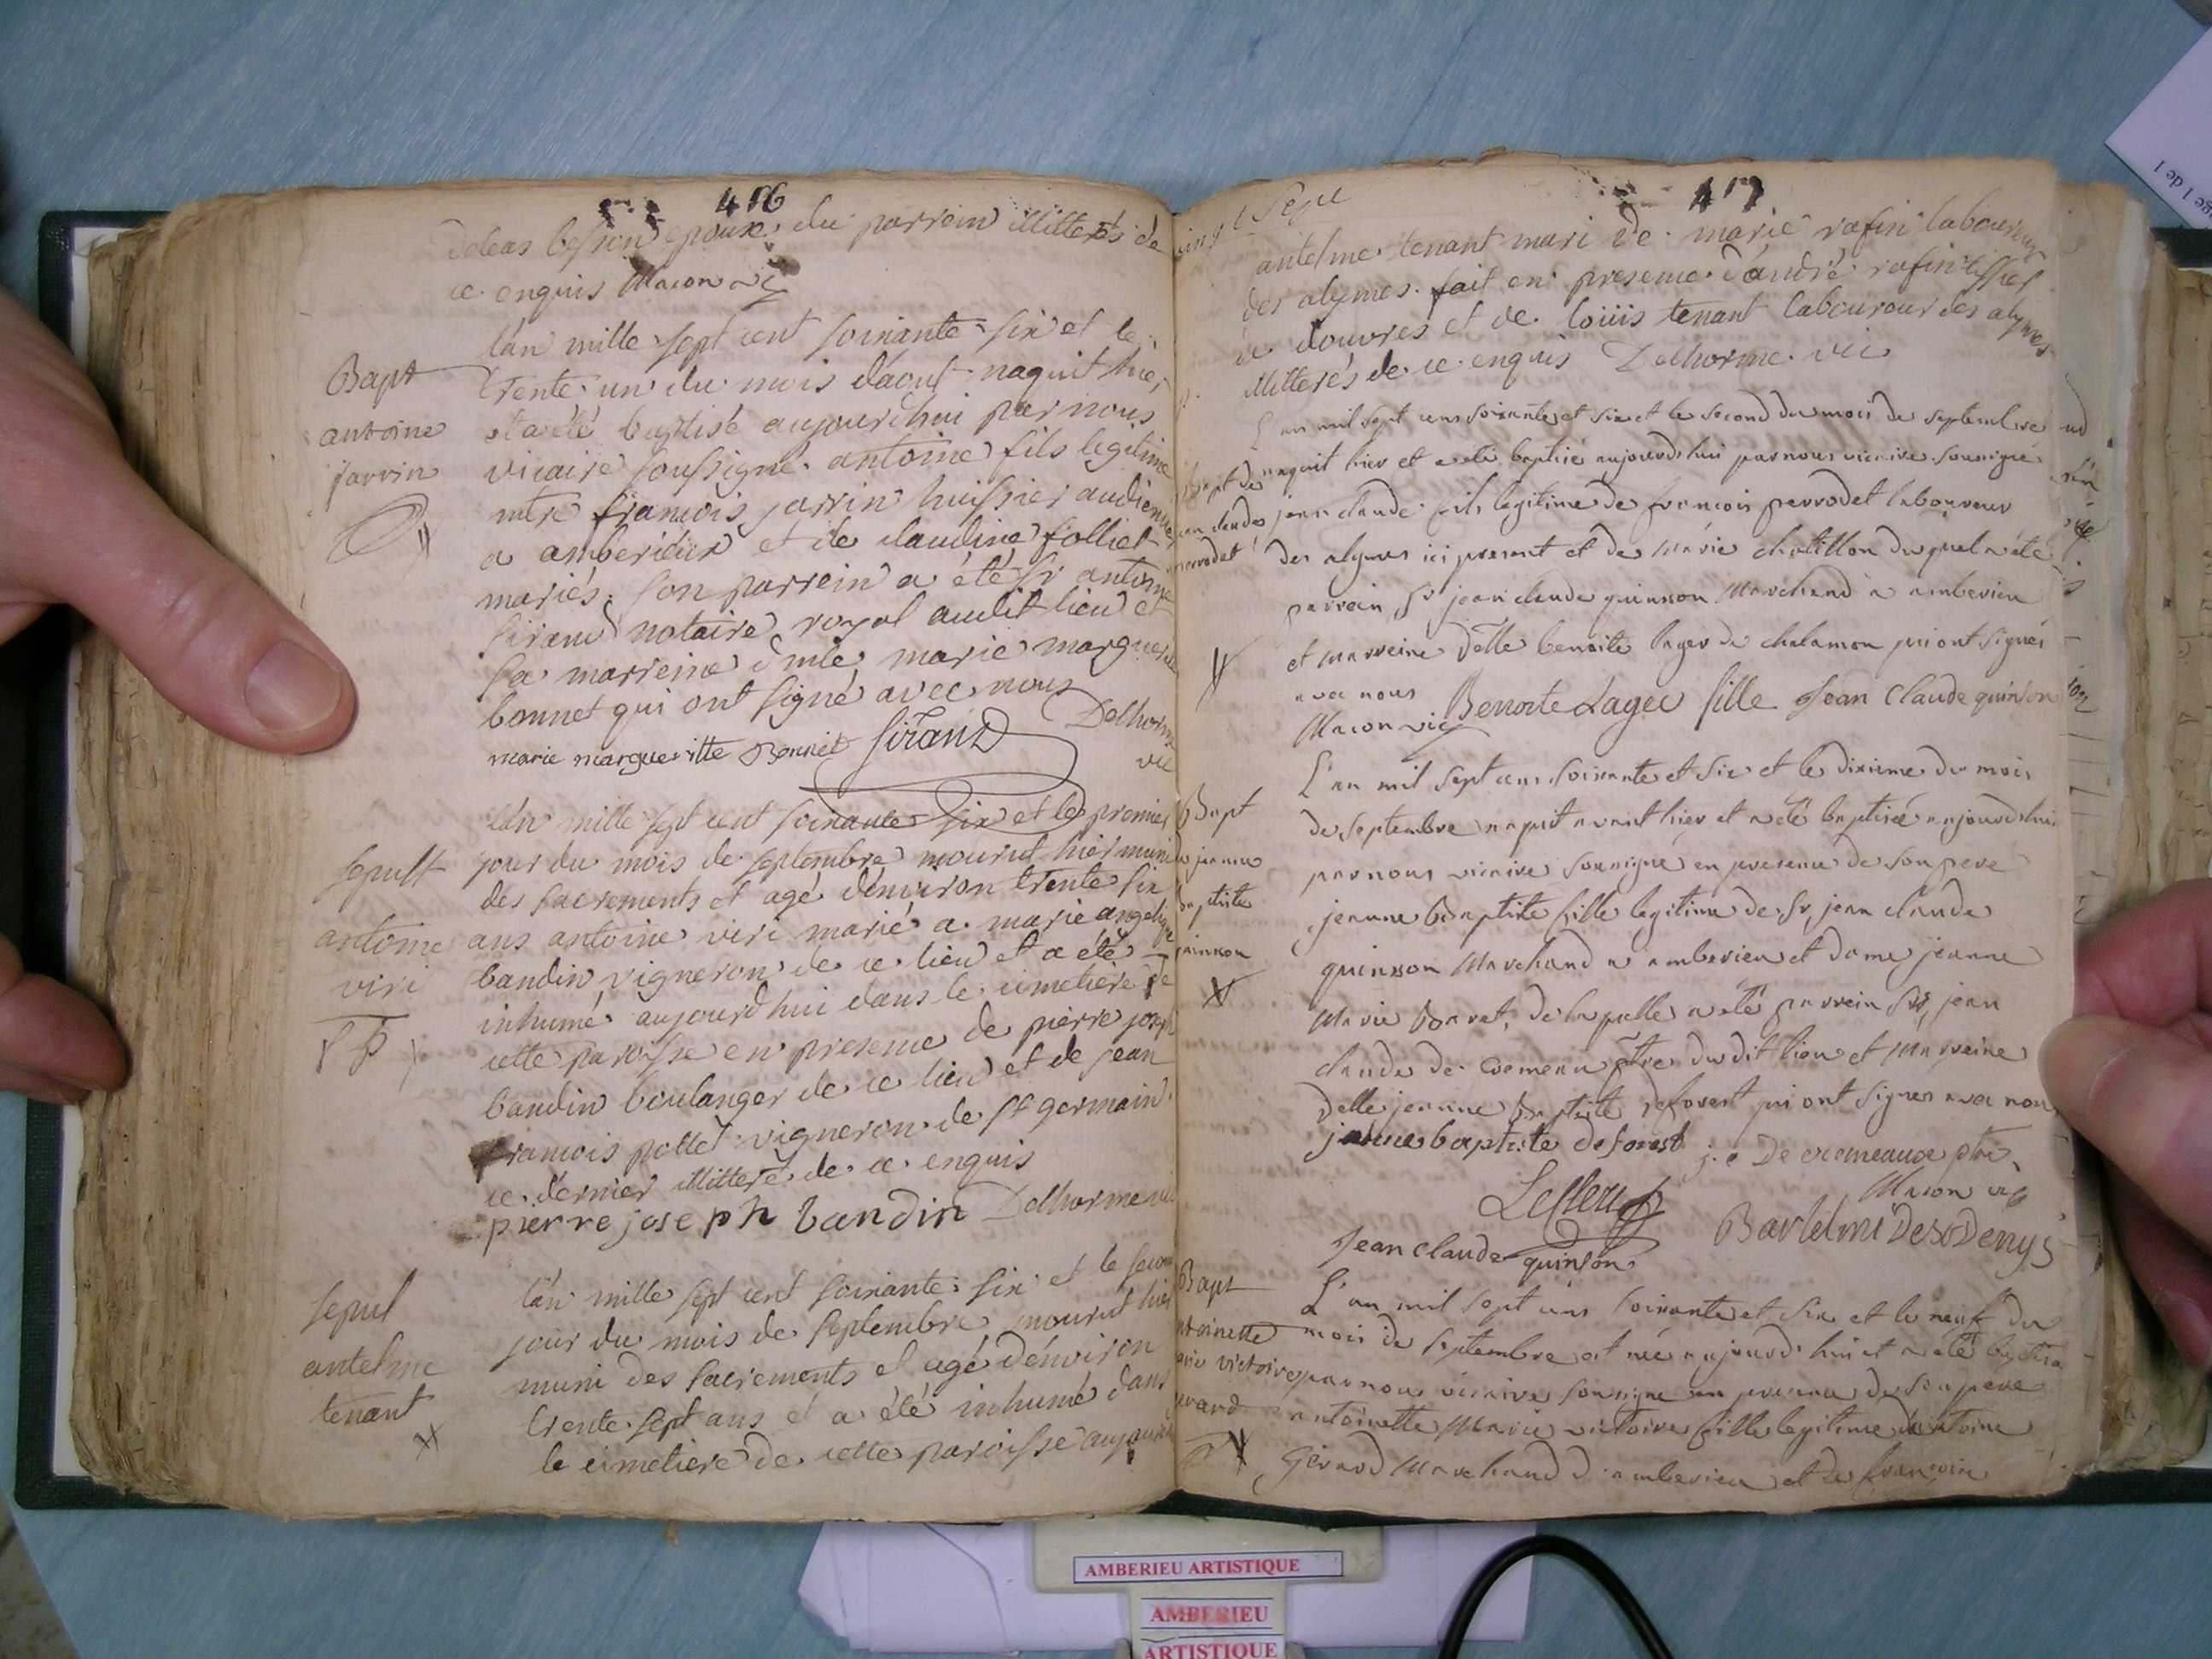 416
besson epoux du parrein illitterés de
ce enquis Macon vic
Bapt
antoine
jarrin
l'an mille sept cent soixante six et le
trente un du mois d'aout naquit hier
et a été baptisé aujourdhui par nous
vicaire soussigné antoine fils legitime
mtre françois jarrin huissier audiencier
a amberieux et de claudine folliet
mariés. son parrein a été sr antoine
sirand notaire royal audit lieu et
sa marreine dmlle marie marguerite
bonnet qui ont signé avec nous
marie margueritte Bonnet Sirand Delhorme
vic
sepult
antoine
viri
l'an mille sept cent soixante six et le premier
jour du mois de septembre mourut hier muni
des sacrements et agé d'environ trente six
ans antoine viri marié a marie angelique
baudin vigneron de ce lieu et a été
inhumé aujourd'hui dans le cimetiere de
cette paroisse en presence de pierre joseph
baudin boulanger de ce lieu et de jean
francois pollet vigneron de st germain
ce dernier illitteré de ce enquis
pierre joseph baudin Delhorme vic
sepul
antelme
tenant
l'an mille sept cent soixante six et le second
jour du mois de septembre mourut hier
muni des sacrements et agé d'environ
trente sept ans et a été inhumé dans
le cimetiere de cette paroisse aujourd
417
sept
antelme tenant mari de marie rafin laboureur
des alymes. fait en presence d'andré rafin tissier
de douvres et de loüis tenant laboureur des alymes
illitterés de ce enquis Delhorme vic
L'an mil sept cens soixante et six et le second du mois de septembre
naquit hier et a été baptisé aujourd'hui par nous vicaire soussigné
jean claude fils legitime de francois perrodet laboureur
des alymes ici present et de Marie chatillon duquel a été
parrein sr jean claude quinson Marchand a amberieu
et marreine delle benoite lager de chalamon qui ont signés
avec nous Benoite Lager fille Jean Claude quinson
Macon vic
Bapt
de jeanne
baptiste
quinson
L'an mil sept cens soixante et six et le dixieme du mois
de septembre naquit avant hier et a été baptisée aujourd'hui
par nous vicaire soussigné en presence de son pere
jeanne Baptiste fille legitime de sr jean claude
quinson Marchand a amberieu et dame jeanne
Marie de laquelle a été parrein jean
claude de cremeau ptre dudit lieu et Marreine
delle jeanne Baptiste deforest qui ont signes avec nous
jeanne baptiste deforest j. c De cremeaux ptre
Macon vic
Leclerc
Jean claude quinson
Bapt
antoinette
marie victoire
gerard
L'an mil sept cens soixante et six et le neuf du
mois de septembre est née aujourd'hui et a été baptisée
par nous vicaire soussigné en presence de son pere
antoinette Marie victoire fille legitime d'antoine
Gerard Marchand d'amberieu et de
AMBERIEU ARTISTIQUE
AMBERIEU
ARTISTIQUE